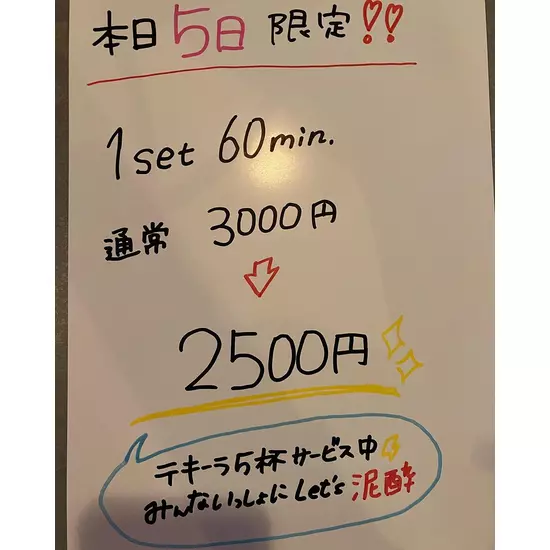 本日5日 限定!!
1set 60min.
通常 3000円
2500円
テキーラ5杯サービス中
みんないっしょに Let's 泥酔